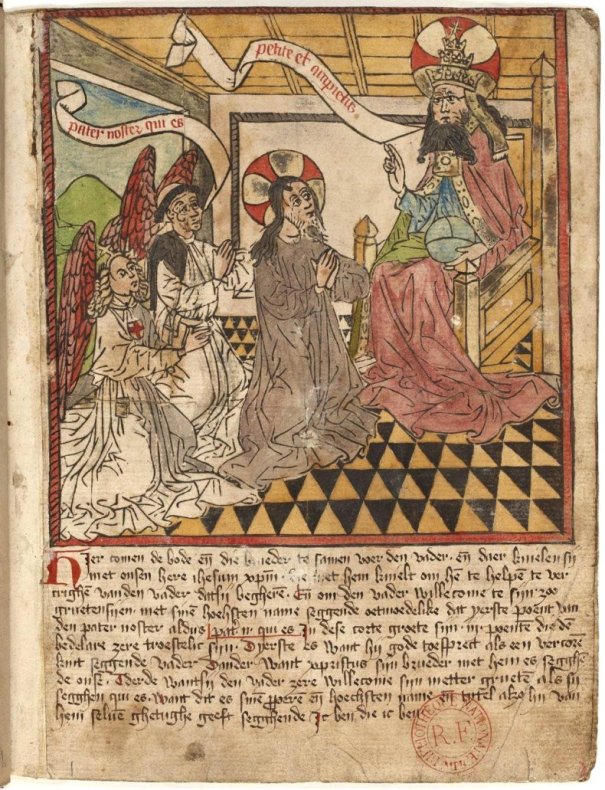 petite et accipietis
pater noster qui es
Hier comen de bode en̄ die brueder te samen voer den vader. en̄ daer knielen sij
met onsen here ihesum xp̄m. die met hem knielt om hē te helpē te ver
crighen vanden vader datsij begherē. En̄ om den vader willecome te sijn zoo
gruetensijen met sinē hoechsten name seggende oetmoedelike dat yerste poent van
den pater noster aldus pat' nr̄ qui es In dese corte groete sijn .iij. poente die dē
bedelare zere troestelic sijn. Dyerste es want hij gode toespreect als een vercorē
kint segghende vader Dander want xpristus sijn brueder met hem es segghē
de onse. Terde wantsij den vader zere willecome sijn metter gruetē als sij
segghen qui es. want dit es sinē properē en̄ hoechsten name en̄ titel alzo hij van
hem seluē ghetughe gheeft segghende Ic ben die ic ben
R.F.